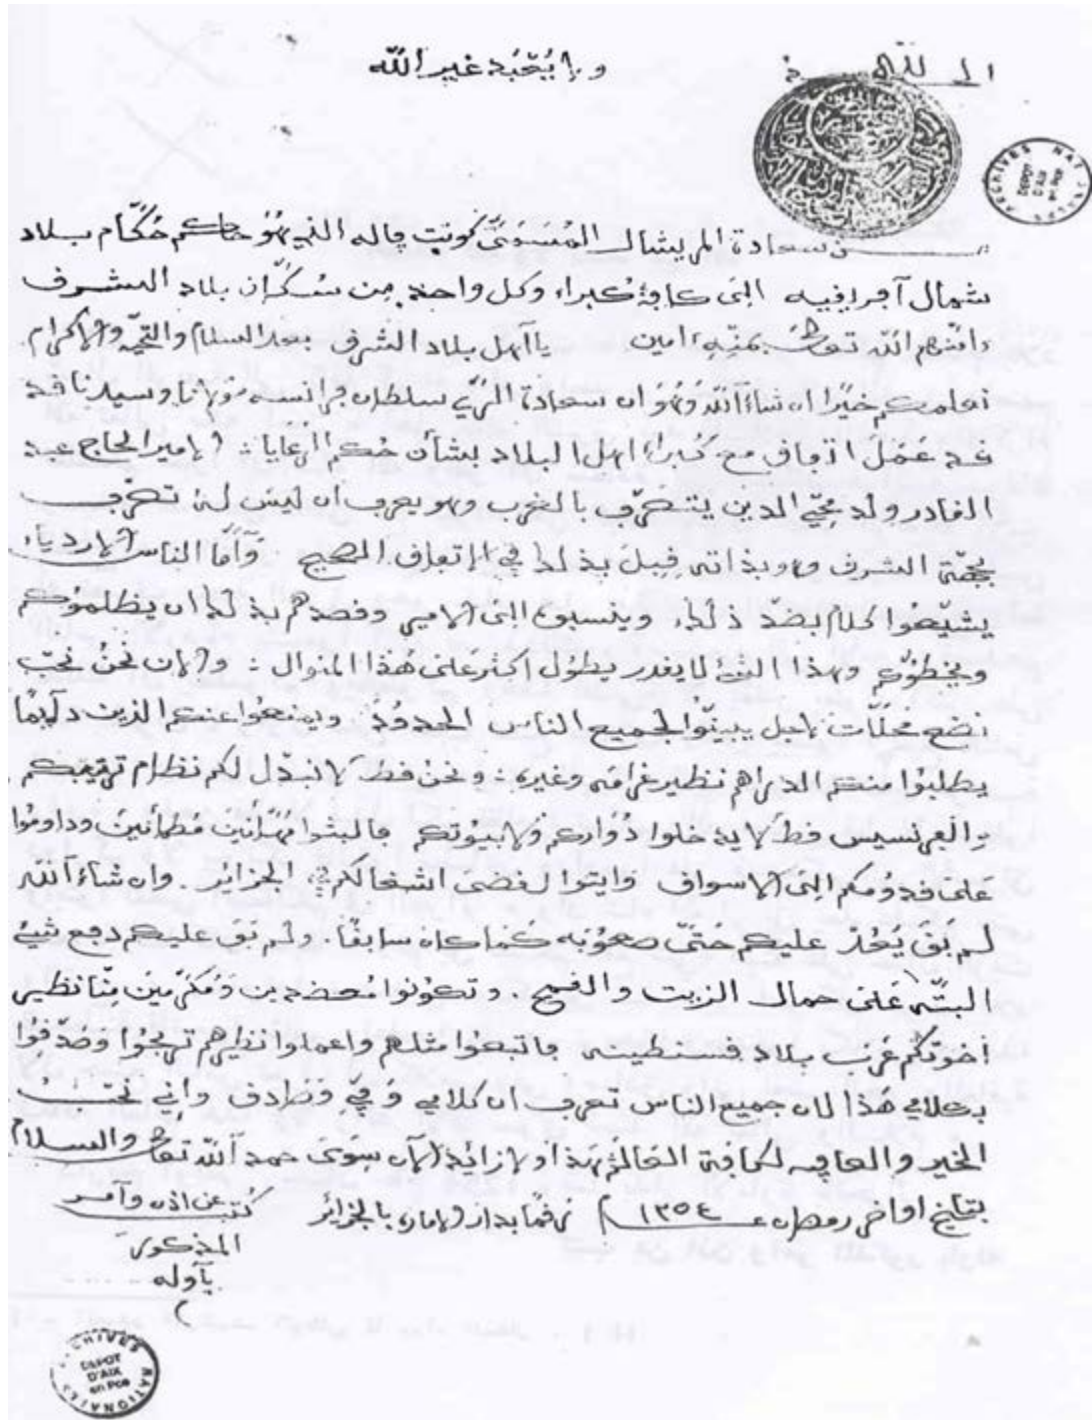 الى الله
ولا يُعْبَد غير الله
من سعادة المريشال المُسَمَّى كونت باله الذي هُوَ حاكم حُكّام بلاد
شمال آفرافيه الى كافة كُبراء وكل واحد من سُكَّان بلاد الشرف
تعالى بمنِّهِ ءامين يا آهل بلاد الشرف بعد السلام والتحيّه والاكرام
نعلمكم خيرًا ان شاءَ اللَّه وَهُوَ ان سعادة الرَّيْ سلطان فرانسه مَولانا وسيدنا قد
قد عَمَلَ اتفاق مع كُبراء اهل البلاد بشأن حُكم الرَّعَايا : الامير الحاج عبد
القادر ولد مُحْيّ الدين يتصَرَّف بالغرب وهو يعرف ان ليسَ لهُ تصَرّف
بجهّة الشرف وهو بذاته قبِلَ بذلك في الاتفاق الصحيح وَأمَّا الناس الاردياء
يشيّعُوا كلام بضدّ ذلك، وينسبون الى الامير وقصدهم بذلك ان يظلمُوكم
ويخطوُّكم وهذا الشئ لا يقدر يطوُل اكثر عَلى هٰذا المنوال : والان نَحْنُ نحبّ
نضع محلّات لاجل يبينّوا لجميع الناس الحدودْ ويمنعُوا عنكم الذين دايمًا
يطلبُوا منكم الدراهم نظير غرامَه وغيره : ونحن قطّ لا نبدّل لكم نظام ترتيبكم
والفرنسيس قطّ لا يدخلوا دُوَّاركم وَلا بيوُتكم فالبثوا مُهَنَّأين مُطمأنين وداومُوا
عَلى قدوُمكم الى الاسواق وَايتوا لقضى اشغالكم في الجزائر . وان شاءَ آللَّه
لم بَقَ يَعُدْ عليكم حَتَّى صعوُبه كَما كان سابقًا . ولم بَقَ عليكم دفع شئ
البتّه عَلى حمال الزيت والقمح . وتكوُنوا مُعضدين وَمُكَرَّمين مِنّا نظير
أخوتكم عَرَب بلاد قسنطينه فاتبعُوا مثلهم واعملوا نظيرهم تربحُوا وصدّقوُا
بكلامي هٰذا لان جميع الناس تعرف ان كلامي وَفيّ وَصَادق وانِّي نحبّ
الخير والعافيه لكافة العَالَم هٰذا ولا زائد الان سِوَى حمد آللَّه تعالى والسلام
بتاريخ اواخر رمضان سنة ١٢٥٤ رقمًا بدار الاماره بالجزائر كُتب عن اذن وآمر
المذكور
بآوله
ARCHIVES NATIONALES
DEPOT
D'AIX
en Pce
ARCHIVES NATIONALES
DEPOT
D'AIX
en Pce